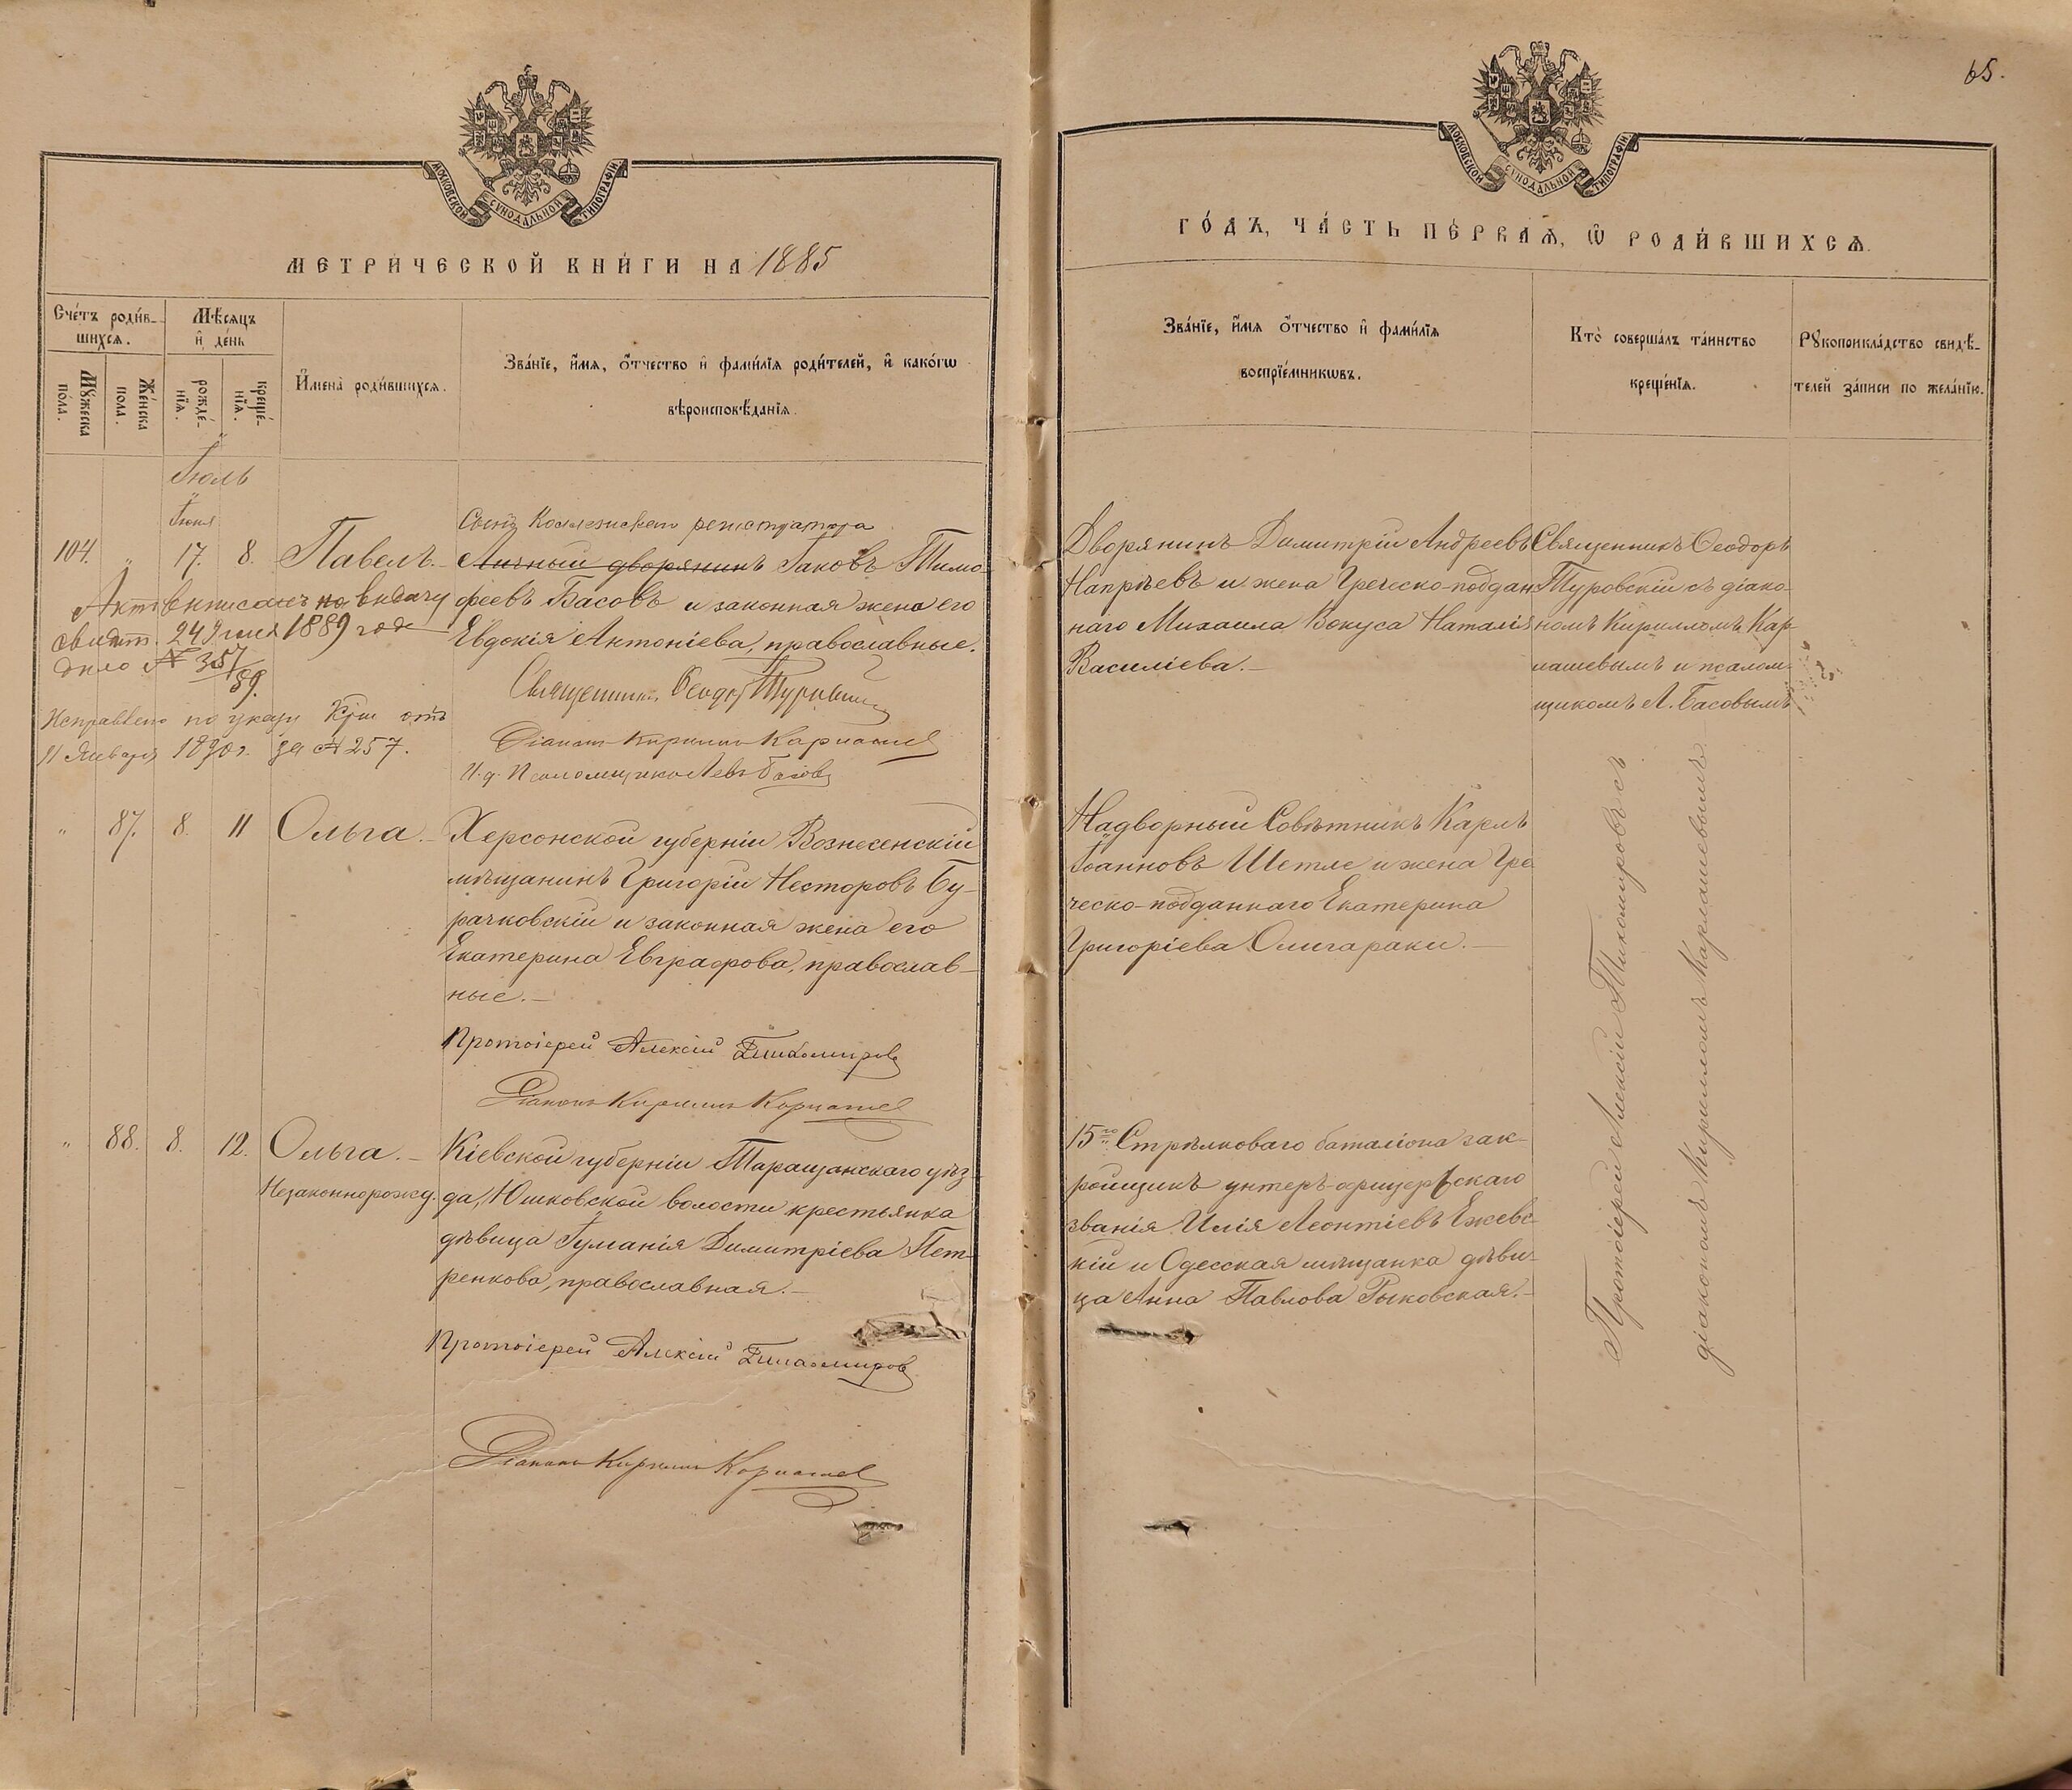 65.
МОСКОВСКОЙ СУНОДАЛЬНОЙ ТИПОГРАФІИ
МОСКОВСКОЙ СУНОДАЛЬНОЙ ТИПОГРАФІИ
МЕТРИ́ЧЕСКОЙ КНИ́ГИ НА 1885
ГО́ДЪ, ЧА́СТЬ ПЕ́РВАѦ, Ѽ РОДИ́ВШИХСѦ.
Сче́тъ роди́вшихсѧ.
Мꙋ́жеска по́ла.
Же́нска пола.
Мѣ́сѧцъ и҆ де́нь
рожде́нїѧ.
креще́нїѧ.
И҆мена̀ роди́вшихсѧ.
Зва́нїе, и҆́мѧ, ѻ҆́тчество и҆ фами́лїѧ роди́телей, и҆ како́гѡ
вѣроисповѣ́данїѧ.
Зва́нїе, и҆́мѧ ѻ҆́тчество и҆ фами́лїѧ
воспрїе́мникѡвъ.
Кто̀ соверша́лъ та́инство
креще́нїѧ.
Рꙋкоприкла́дство свидѣ́-
телей за́писи по жела́нїю.
Іюль
Іюня
104. " 17. 8. Павелъ.
Сынъ Коллежскаго регистратора
Личный дворянинъ Іаковъ Тимо-
феевъ Басовъ и законная жена его
Евдокія Антоніева, православные.
Священникъ Ѳеодоръ Туровскій
Діаконъ Кириллъ Карпашев
И. д. Псаломщика Левъ Басовъ
Актъ выписанъ на выдачу
свидѣт. 24 Іюля 1889 года
дѣло № 357/89.
Исправлено по указу Х. д. к. отъ
11 Января 1890 г. за № 257.
Дворянинъ Димитрій Андреевъ
Напрѣевъ и жена Греческо-поддан
наго Михаила Вокуса Наталія
Василіева.
Священникъ Ѳеодоръ
Туровскій съ діако-
номъ Кирилломъ Кар-
лашевымъ и псалом-
щикомъ Л. Басовымъ
" 87. 8. 11 Ольга.
Херсонской губерніи Вознесенскій
мѣщанинъ Григорій Несторовъ Бу-
рачковскій и законная жена его
Екатерина Евграфова, православ-
ные.
Протоіерей Алексій Тихомировъ
Діаконъ Кириллъ Карлашев
Надворный Совѣтникъ Карлъ
Іоанновъ Шетле и жена Гре
ческо-подданнаго Екатерина
Григоріева Олигараки.
Протоіерей Алексій Тихомировъ съ
діакономъ Кирилломъ Карлашевымъ
" 88. 8. 12. Ольга.
Незаконнорожд.
Кіевской губерніи Таращанскаго уѣз-
да, Юшковской волости крестьянка
дѣвица Іуліанія Димитріева Пет-
ренкова, православная.
Протоіерей Алексій Тихомировъ
Діаконъ Кириллъ Карлашев
15го Стрѣлковаго баталіона зак-
ройщикъ унтеръ-офицерскаго
званія Илія Леонтіевъ Ежевс-
кій и Одесская мѣщанка дѣви-
ца Анна Павлова Рыковская.